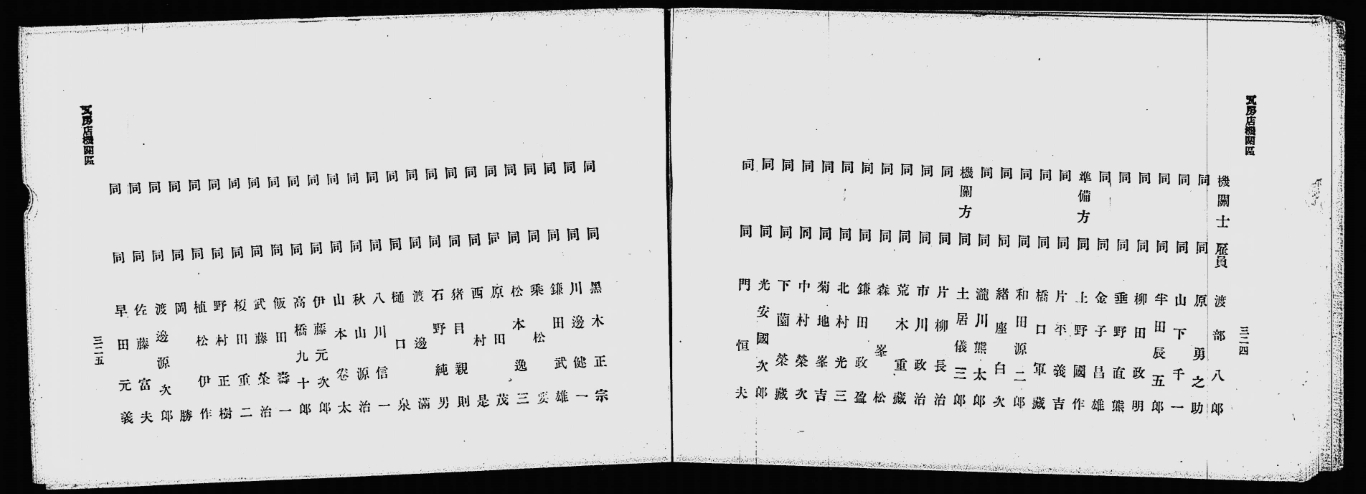 瓦房店機關區
三二四
機關士 雇員 渡部八郎
同 同 原勇之助
同 同 山下千一
同 同 半田辰五郎
同 同 柳田政明
同 同 垂野直熊
同 同 金子昌雄
準備方 同 上野國作
同 同 片平義吉
同 同 橋口軍藏
同 同 和田源二郎
同 同 緒座白次
同 同 瀧川熊太郎
機關方 同 土居儀三郎
同 同 片柳長治
同 同 市川政治
同 同 荒木重藏
同 同 森峯松
同 同 鎌田政盈
同 同 北村光三
同 同 菊地峯吉
同 同 中村榮次
同 同 下薗榮藏
同 同 光安國次郎
同 同 門恒夫
同 同 黑木正宗
同 同 川邊健一
同 同 鎌田武雄
同 同 乘松
同 同 松本逸三
同 同 原田茂
同 同 西村是
同 同 猪目親則
同 同 石野純男
同 同 渡邊滿
同 同 樋口泉
同 同 八川信一
同 同 秋山源治
同 同 山本卷太
同 同 伊藤元次郎
同 同 高橋九十郎
同 同 飯田壽一
同 同 武藤榮治
同 同 榎田重二
同 同 野村正樹
同 同 植松伊作
同 同 岡勝
同 同 渡邊源次郎
同 同 佐藤富夫
同 同 早田元義
瓦房店機關區
三二五